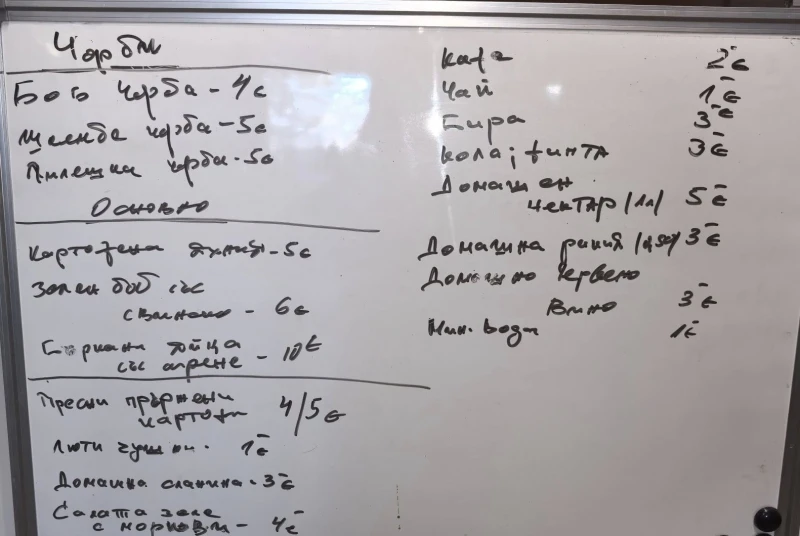 Чорби
Боб чорба - 4€
Шкембе чорба - 5€
Пилешка чорба - 5€
Основно
Картофена яхния - 5€
Зелен боб със
свинско - 6€
Бъркани яйца
със сирене - 10€
Пресни пържени
картофи 4/5€
Люти чушки - 1€
Домашна сланина - 3€
Салата зеле
с моркови - 4€
Кафе 2€
Чай 1€
Бира 3€
Кола; Финта 3€
Домашен
нектар /1л/ 5€
Домашна ракия 3€
Домашно червено
вино 3€
Мин. вода 1€